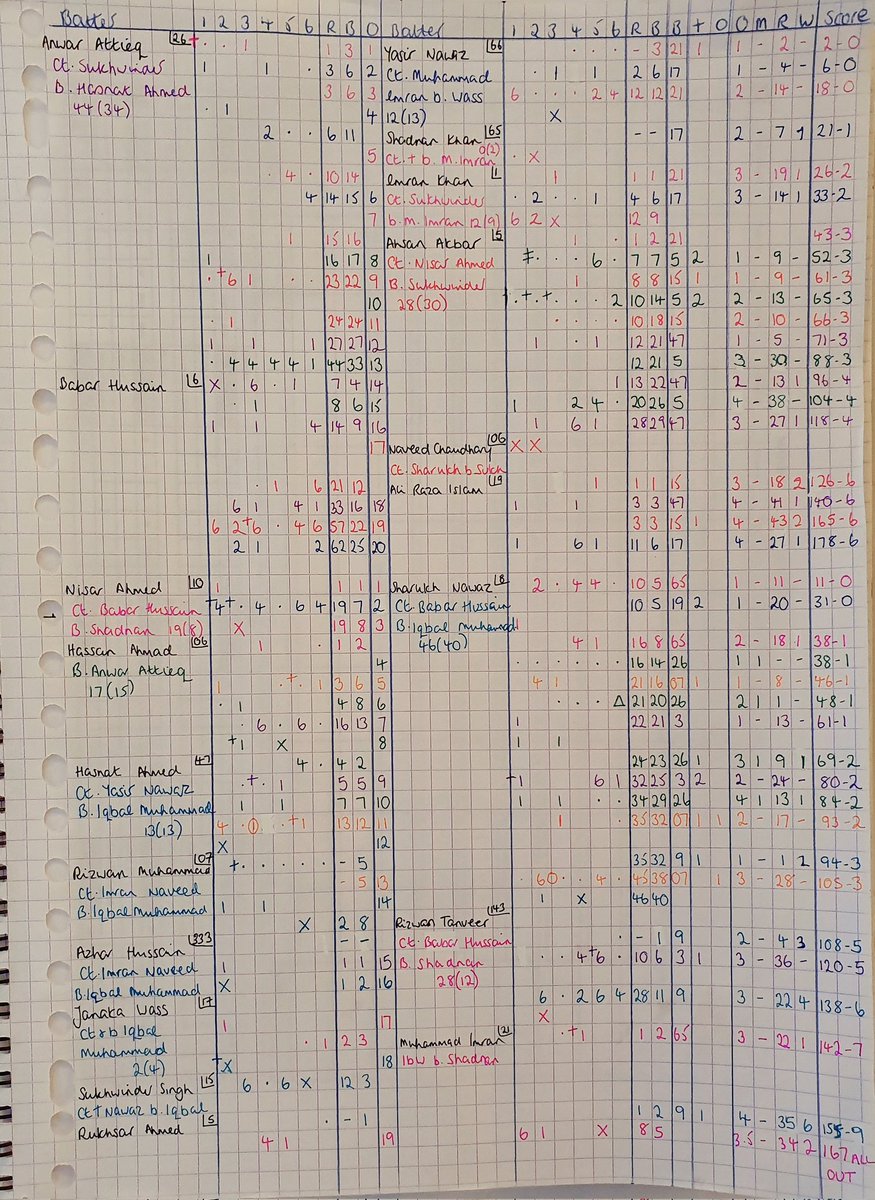 Batter 1 2 3 4 5 6 R B O Batter 1 2 3 4 5 6 R B B + O O M R W Score
Anwar Attieq 26 + · 1 1 3 1 Yasir Nawaz 66 · · · - 3 21 1 1 - 2 - 2-0
Ct. Sukhwinder 1 1 · 3 6 2 Ct. Muhammad · 1 1 2 6 17 1 - 4 - 6-0
B. Hasnat Ahmed 3 6 3 Imran b. Wass 6 · · · 2 4 12 12 21 2 - 14 - 18-0
44(34) · 1 4 12(13) X
2 · · 6 11 Shadnan Khan 65 - - 17 2 - 7 1 21-1
5 Ct. + b. M. Imran 0(2) · X
· 4 · 10 14 Imran Khan 1 1 1 1 21 3 - 19 1 26-2
4 14 15 6 Ct. Sukhwinder · 2 · · 1 4 6 17 3 - 14 1 33-2
7 b. M. Imran 12(9) 6 2 X 12 9
1 15 16 Ahsan Akbar 5 1 · 1 2 21 43-3
1 16 17 8 Ct. Nisar Ahmed · · 6 · 7 7 5 2 1 - 9 - 52-3
· + 6 1 23 22 9 B. Sukhwinder 1 8 8 15 1 1 - 9 - 61-3
10 28(30) · + · + · · · 2 10 14 5 2 2 - 13 - 65-3
· 1 24 24 11 · · · · 10 18 15 2 - 10 - 66-3
1 1 1 27 27 12 1 · 1 12 21 47 1 - 5 - 71-3
· 4 4 4 4 1 44 33 13 12 21 5 3 - 30 - 88-3
Babar Hussain 6 X · 6 · 1 7 4 14 1 13 22 47 2 - 13 1 96-4
· 1 8 6 15 1 2 4 · 20 26 5 4 - 38 - 104-4
1 1 4 14 9 16 1 6 1 28 29 47 3 - 27 1 118-4
17 Naveed Chaudhary 106 X X
Ct. Sharukh b Sukh
· · 1 6 21 12 Ali Raza Islam 19 1 1 1 15 3 - 18 2 126-6
6 1 4 1 33 16 18 1 1 3 3 47 4 - 41 1 140-6
6 2 + 6 · 4 6 57 22 19 3 3 15 1 4 - 43 2 165-6
2 1 2 62 25 20 1 6 1 11 6 17 4 - 27 1 178-6
Nisar Ahmed 10 1 1 1 1 Sharukh Nawaz 8 · 2 · 4 4 · 10 5 65 1 - 11 - 11-0
Ct. Babar Hussain + 4 + · 4 · 6 4 19 7 2 Ct Babar Hussain 10 5 19 2 1 - 20 - 31-0
B. Shadnan 19(8) X 19 8 3 B. Iqbal Muhammad
Hassan Ahmad 06 1 · 1 2 46(40) 4 1 16 8 65 2 - 18 1 38-1
B. Anwar Attieq 4 · · · · · · 16 14 26 1 1 - - 38-1
17(15) 1 · + · 1 3 6 5 4 1 21 16 07 1 1 - 8 - 46-1
· 1 4 8 6 · · · Δ 21 20 26 2 1 1 - 48-1
· 6 · 6 · 16 13 7 1 22 21 3 1 - 13 - 61-1
+1 X 8 1 1
Hasnat Ahmed 47 4 · 4 2 24 23 26 1 3 1 9 1 69-2
Ct. Yasir Nawaz · + · 1 5 5 9 +1 6 1 32 25 3 2 2 - 24 - 80-2
B. Iqbal Muhammad 1 1 7 7 10 1 1 · · 34 29 26 4 1 13 1 84-2
13(13) 4 · · +1 13 12 11 1 35 32 07 1 1 2 - 17 - 93-2
X 12
Rizwan Muhammad 107 + · · · · · - 5 35 32 9 1 1 - 1 2 94-3
Ct. Imran Naveed - 5 13 · 6 · · 4 · 45 38 07 1 3 - 28 - 105-3
B. Iqbal Muhammad 1 1 14 1 X 46 40
X 2 8 Rizwan Tanveer 143
Azhar Hussain 333 - - Ct. Babar Hussain · - 1 9 2 - 4 3 108-5
Ct. Imran Naveed 1 1 1 15 B. Shadnan · · 4 + 6 · 10 6 3 1 3 - 36 - 120-5
B. Iqbal Muhammad X 1 2 16 28(12)
Janaka Wass 17 6 · 2 6 4 28 11 9 3 - 22 4 138-6
Ct & b Iqbal 1 17 X
Muhammad · 1 2 3 Muhammad Imran 21 · + 1 1 2 65 3 - 22 1 142-7
2(4) + X 18 lbw b. Shadnan
Sukhwinder Singh 15 6 · 6 X 12 3
Ct + Nawaz b. Iqbal
Rukhsar Ahmed 5 · - 1 1 2 9 1 4 - 35 6 155-9
4 1 19 6 1 X 8 5 3.5 - 34 2 167 ALL
OUT
1